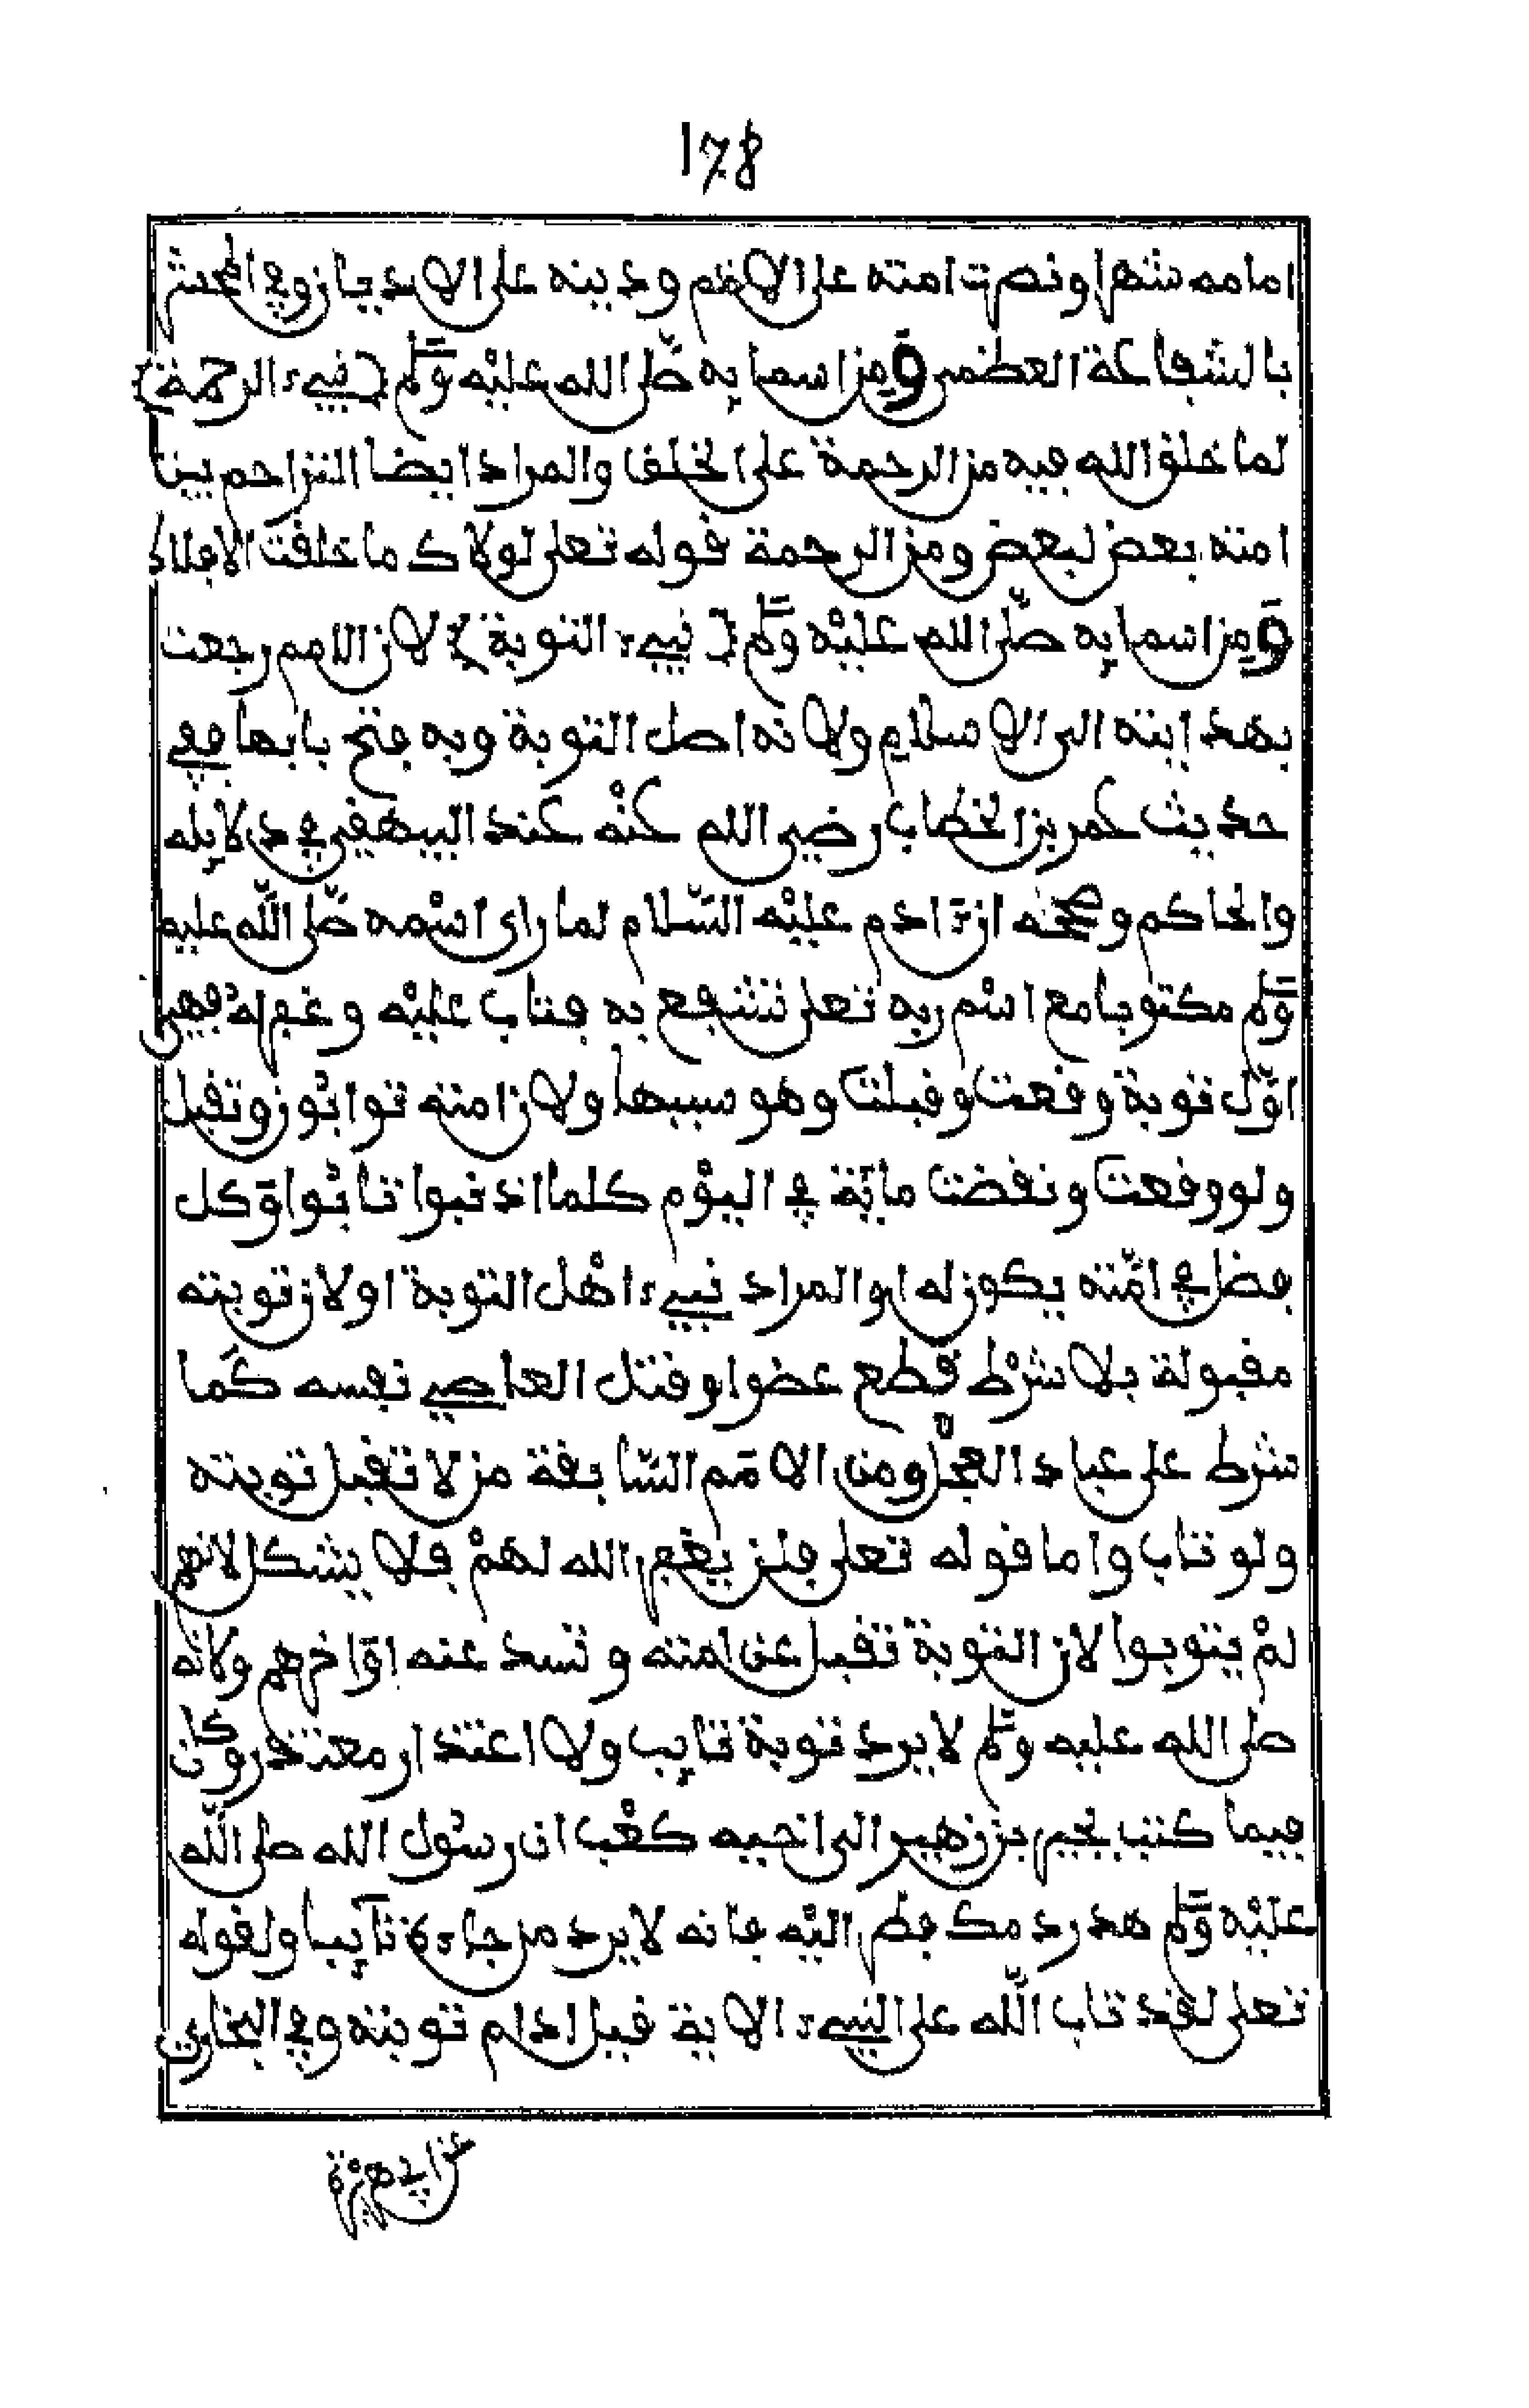 178
امامه شهرا ونصرت امته على الامم ودينه على الاديان وفي المحشر
بالشفاعة العظمى ومن اسمايه صلى الله عليه وسلم (نبيء الرحمة)
لما خلق الله فيه من الرحمة على الخلق والمراد ايضا التراحم بين
امته بعض لبعض ومن الرحمة قوله تعلى لولاك ما خلقت الافلاك
ومن اسمايه صلى الله عليه وسلم (نبيء التوبة) لان الامم رجعت
بهدايته الى الاسلام ولانه اصل التوبة وبه فتح بابها ففي
حديث عمر بن الخطاب رضي الله عنه عند البيهقي في دلايله
والحاكم وصححه ان ءادم عليه السلام لما راى اسمه صلى الله عليه
وسلم مكتوبا مع اسم ربه تعلى تشفع به فتاب عليه وغفر له فهي
اول توبة وقعت وقبلت وهو سببها ولان امته توابون وتقبل
ولو وقعت ونقضت ماية في اليوم كلما اذنبوا تابوا وكل
فضل في امته يكون له او المراد نبيء اهل التوبة او لان توبته
مقبولة بلا شرط قطع عضو او قتل العاصي نفسه كما
شرط على عباد العجل ومن الامم السابقة من لا تقبل توبته
ولو تاب واما قوله تعلى فلن يغفر الله لهم فلا يشكل لانهم
لم يتوبوا لان التوبة تقبل عن امته وتسد عنه اواخرهم ولانه
صلى الله عليه وسلم لا يرد توبة تايب ولا اعتذار معتذر وكان
فيما كتب بجير بن زهير الى اخيه كعب ان رسول الله صلى الله
عليه وسلم هدر دمك فطر اليه فانه لا يرد من جاءه تايبا ولقوله
تعلى لقد تاب الله على النبيء الاية قبل ادام توبته وفي البخاري
عن ابي هريرة